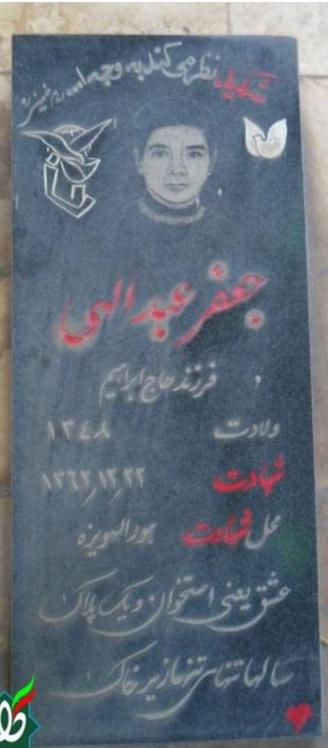 شهید نظر می کند به وجه الله امام خمینی ره
جعفر عبدالهی
فرزند حاج ابراهیم
ولادت ۱۳۴۸
شهادت ۱۳۶۲٫۱۲٫۲۲
محل شهادت هورالهویزه
عشق یعنی استخوان و یک پلاک
سالها تنهای تنها زیر خاک